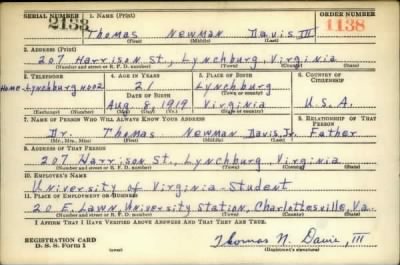 SERIAL NUMBER 2133 1. NAME (Print) ORDER NUMBER 1138
Thomas Newman Davis, III
(First) (Middle) (Last)
2. ADDRESS (Print)
207 Harrison St., Lynchburg, Virginia
(Number and street or R. F. D. number) (Town) (County) (State)
3. TELEPHONE 4. AGE IN YEARS 5. PLACE OF BIRTH 6. COUNTRY OF CITIZENSHIP
21 Lynchburg
Home-Lynchburg DATE OF BIRTH (Town or county)
Aug. 8, 1919 Virginia U.S.A.
(Exchange) (No.) (Mo.) (Day) (Yr.) (State or country)
7. NAME OF PERSON WHO WILL ALWAYS KNOW YOUR ADDRESS 8. RELATIONSHIP OF THAT PERSON
Dr. Thomas Newman Davis, Jr. Father
(Mr., Mrs., Miss) (First) (Middle) (Last)
9. ADDRESS OF THAT PERSON
207 Harrison St., Lynchburg, Virginia
(Number and street or R. F. D. number) (Town) (County) (State)
10. EMPLOYER'S NAME
University of Virginia-Student
11. PLACE OF EMPLOYMENT OR BUSINESS
20 E. Lawn, University Station, Charlottesville, Va.
(Number and street or R. F. D. number) (Town) (County) (State)
I AFFIRM THAT I HAVE VERIFIED ABOVE ANSWERS AND THAT THEY ARE TRUE.
REGISTRATION CARD
D. S. S. Form 1 (over) Thomas N. Davis, III
(Registrant's signature)